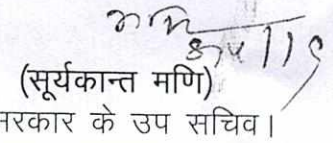 (सूर्यकान्त मणि)
सरकार के उप सचिव।